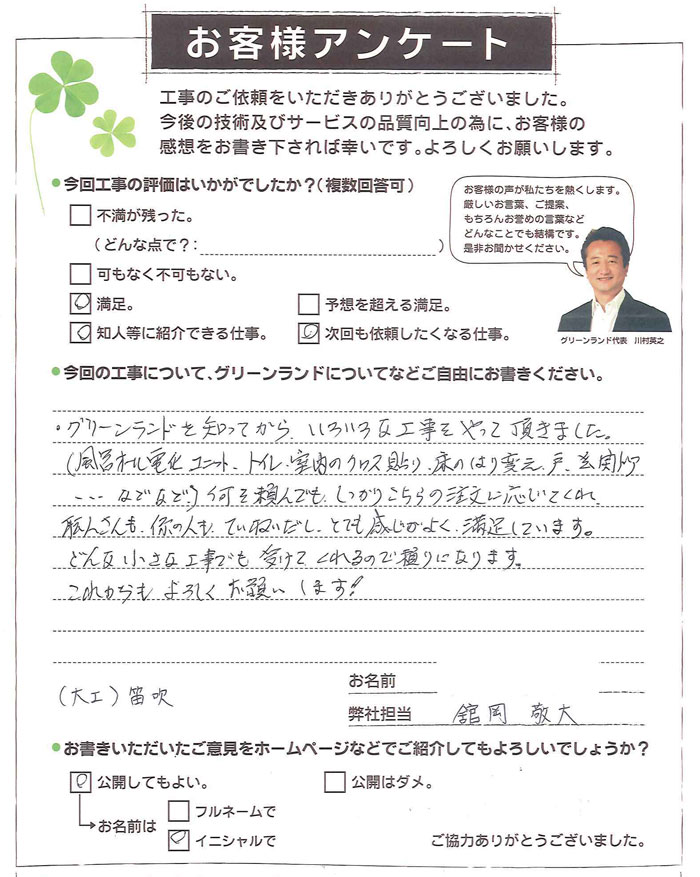 お客様アンケート
工事のご依頼をいただきありがとうございました。
今後の技術及びサービスの品質向上の為に、お客様の
感想をお書き下されば幸いです。よろしくお願いします。
●今回工事の評価はいかがでしたか?(複数回答可)
不満が残った。
(どんな点で?: )
可もなく不可もない。
満足。
予想を超える満足。
知人等に紹介できる仕事。
次回も依頼したくなる仕事。
お客様の声が私たちを熱くします。
厳しいお言葉、ご提案、
もちろんお誉めの言葉など
どんなことでも結構です。
是非お聞かせください。
グリーンランド代表 川村英之
●今回の工事について、グリーンランドについてなどご自由にお書きください。
・グリーンランドを知ってから、いろいろな工事をやって頂きました。
(風呂オール電化、ユニット、トイレ・室内のクロス貼り、床のはり変え、戸、玄関ドア
--- などなど) 何を頼んでも、しっかりこちらの注文に応じてくれ、
職人さんも、係の人も、ていねいだし、とても感じがよく、満足しています。
どんな小さな工事でも受けてくれるので頼りになります。
これからもよろしくお願いします!
(大工) 笛吹
お名前
弊社担当 舘岡 敬大
●お書きいただいたご意見をホームページなどでご紹介してもよろしいでしょうか?
公開してもよい。
公開はダメ。
お名前は
フルネームで
イニシャルで
ご協力ありがとうございました。